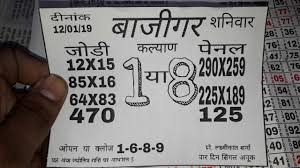 दीनांक
12/01/19
बाजीगर
शनिवार
जोडी
कल्याण
पेनल
12X15
85X16
64X83
470
1 या 8
290X259
225X189
125
ओपन या क्लोज 1-6-8-9
प्रो. लक्ष्मीकांत शर्मा
चार दिन सिंगल अचूक